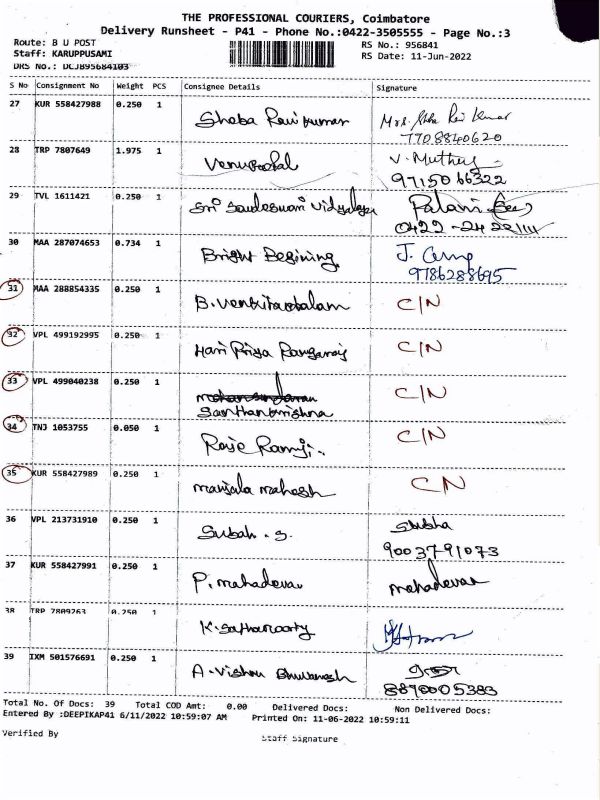 THE PROFESSIONAL COURIERS, Coimbatore
Delivery Runsheet - P41 - Phone No.:0422-3505555 - Page No.:3
Route: B U POST
RS No.: 956841
Staff: KARUPPUSAMI
RS Date: 11-Jun-2022
DRS No.: DCJB95684103
S No Consignment No Weight PCS Consignee Details Signature
27 KUR 558427988 0.250 1 Sheba Ravi Kumar
7708840620
28 TRP 7807649 1.975 1 Venugopal V. Muthu
9715066322
29 TVL 1611421 0.250 1 Sri Vidyalaya Palani
0422
30 MAA 287074653 0.734 1 Bright Begining J.
9786288695
31 MAA 288854335 0.250 1 B. Venkitachalam C/N
32 VPL 499192995 0.250 1 Hari Priya Rangaraj C/N
33 VPL 499040238 0.250 1 C/N
34 TNJ 1053755 0.050 1 C/N
35 KUR 558427989 0.250 1 manjala mahesh CN
36 VPL 213731910 0.250 1 Subah . S.
9003791073
37 KUR 558427991 0.250 1 P. mahadevan mahadevan
38 TRP 7809263 0.250 1
39 IXM 501576691 0.250 1 A. Vishnu Bhuvanesh
8870005383
Total No. Of Docs: 39 Total COD Amt: 0.00 Delivered Docs: Non Delivered Docs:
Entered By :DEEPIKAP41 6/11/2022 10:59:07 AM Printed On: 11-06-2022 10:59:11
Verified By
Staff Signature